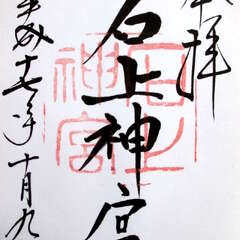 奉拝
石上神宮
石上
神宮
平成十七年十月九